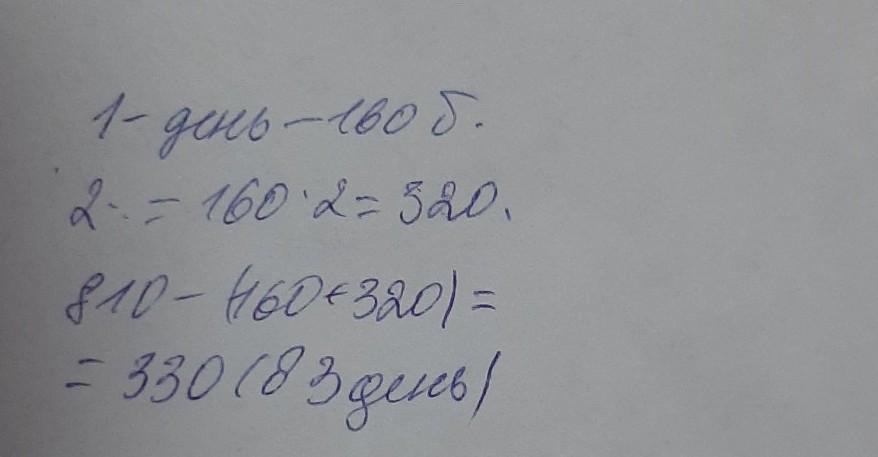 1- день - 160 б.
2. = 160 · 2 = 320.
810 - (160 + 320) =
= 330 (в 3 день)